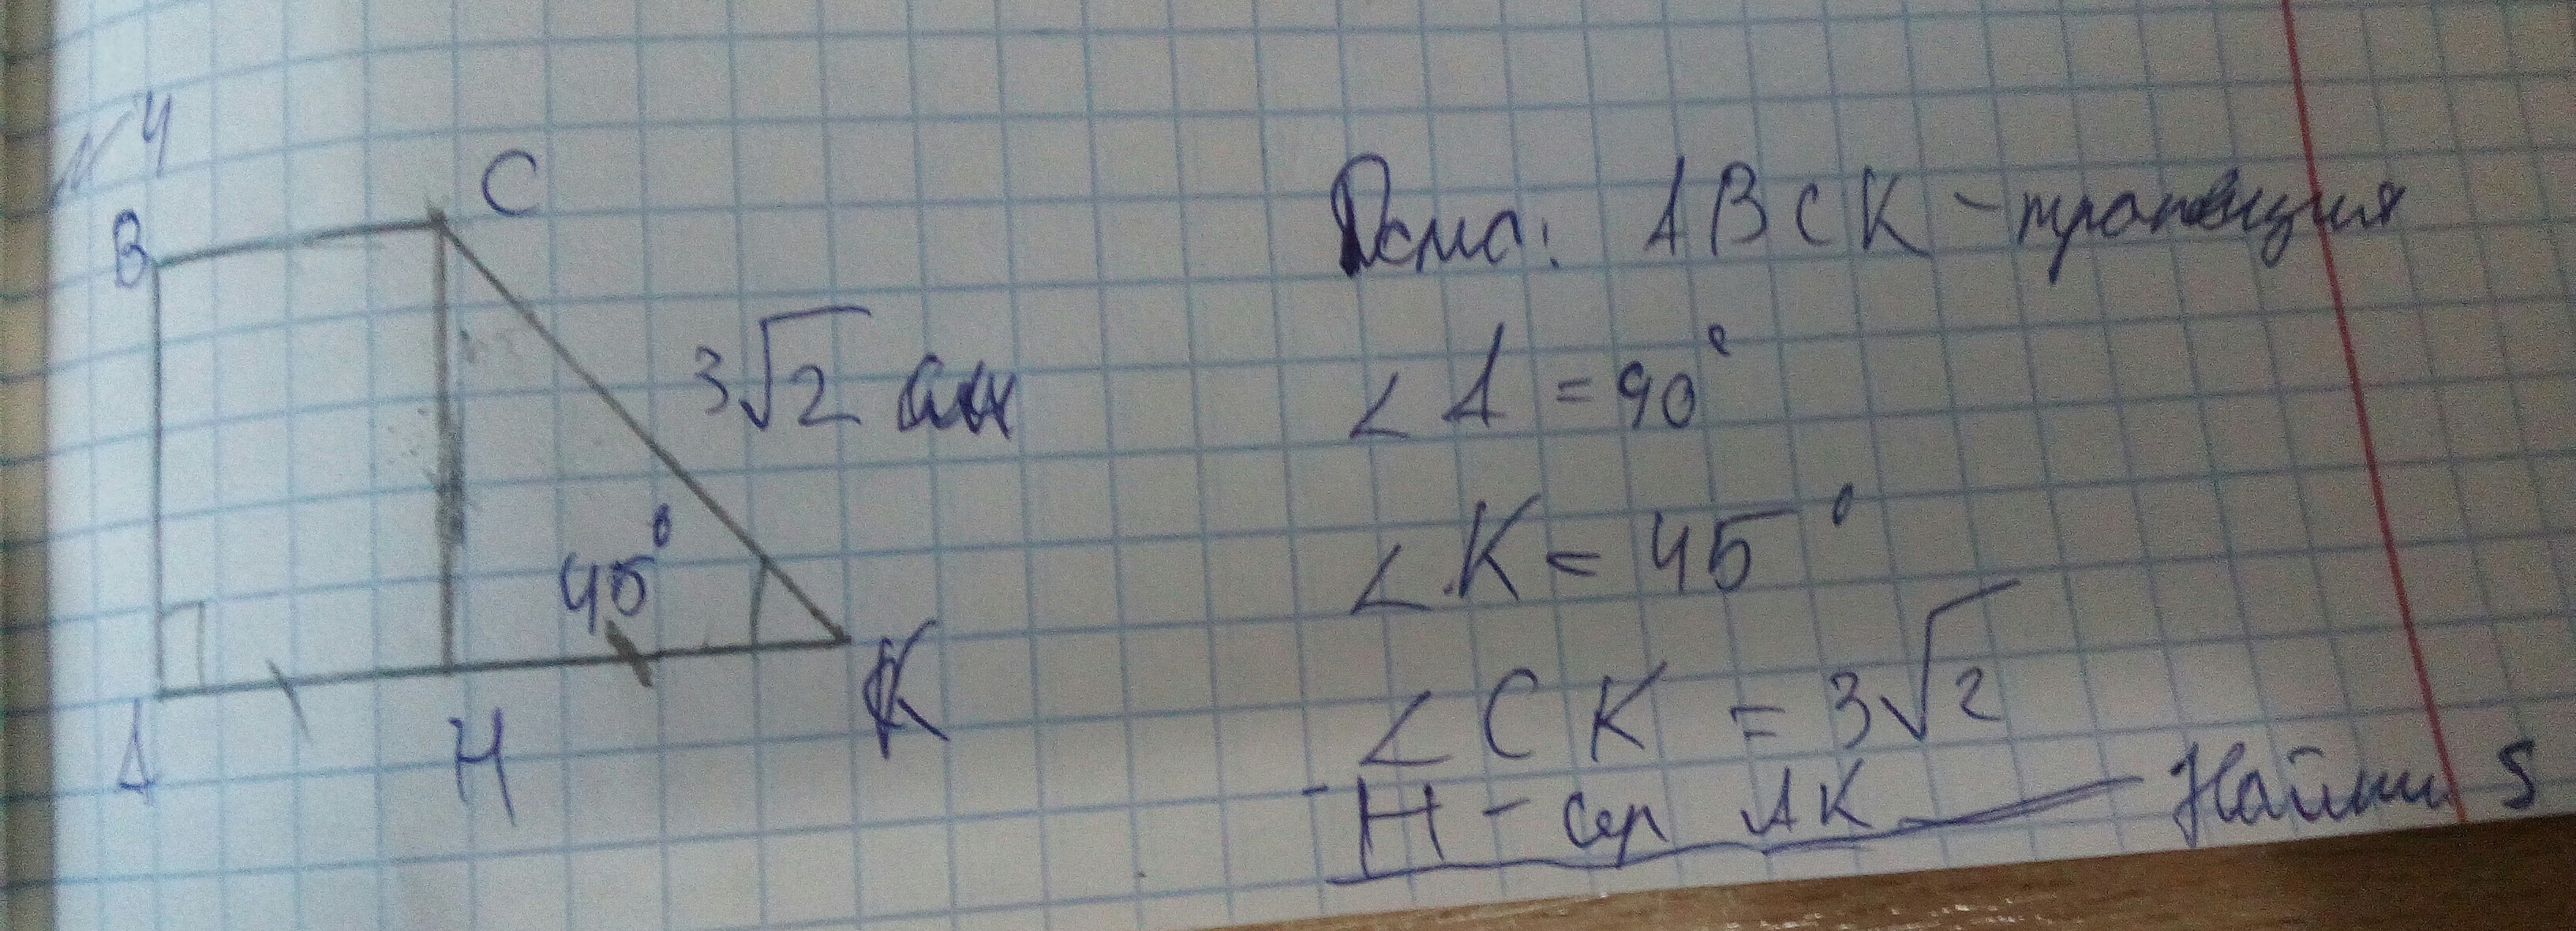 №4
B
C
3√2 см
45°
A
H
K
Дано: ABCK - трапеция
∠A = 90°
∠.K = 45°
∠CK = 3√2
H - сер AK
Найти S